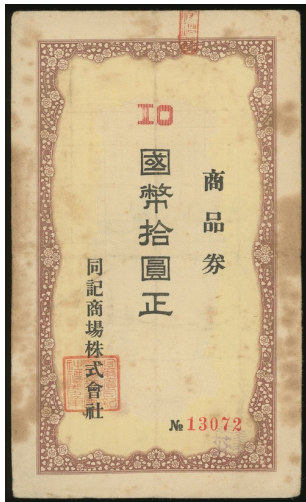 10
商品券
國幣拾圓正
同記商場株式會社
№ 13072